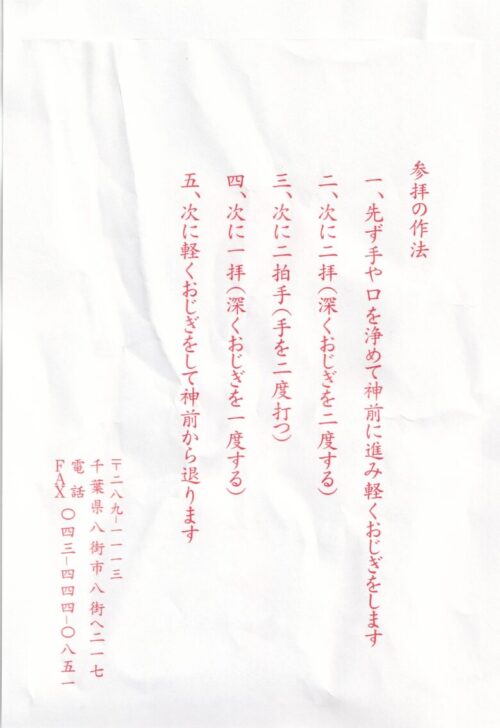 参拝の作法
一、先ず手や口を浄めて神前に進み軽くおじぎをします
二、次に二拝(深くおじぎを二度する)
三、次に二拍手(手を二度打つ)
四、次に一拝(深くおじぎを一度する)
五、次に軽くおじぎをして神前から退ります
〒二八九-一一一三
千葉県八街市八街へ二一七
電話
FAX 〇四三-四四四-〇八五一